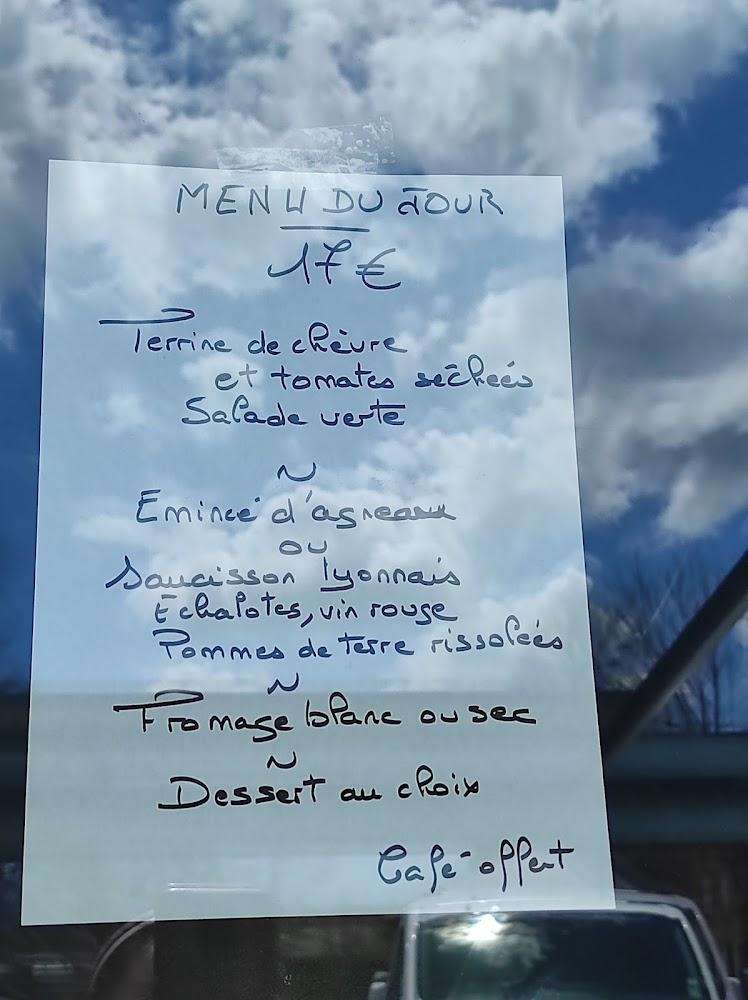 MENU DU JOUR
17 €
Terrine de chèvre
et tomates sêchées
Salade verte
~
Emincé d'agneau
ou
Saucisson lyonnais
Echalotes, vin rouge
Pommes de terre rissolées
~
Fromage blanc ou sec
~
Dessert au choix
Café offert